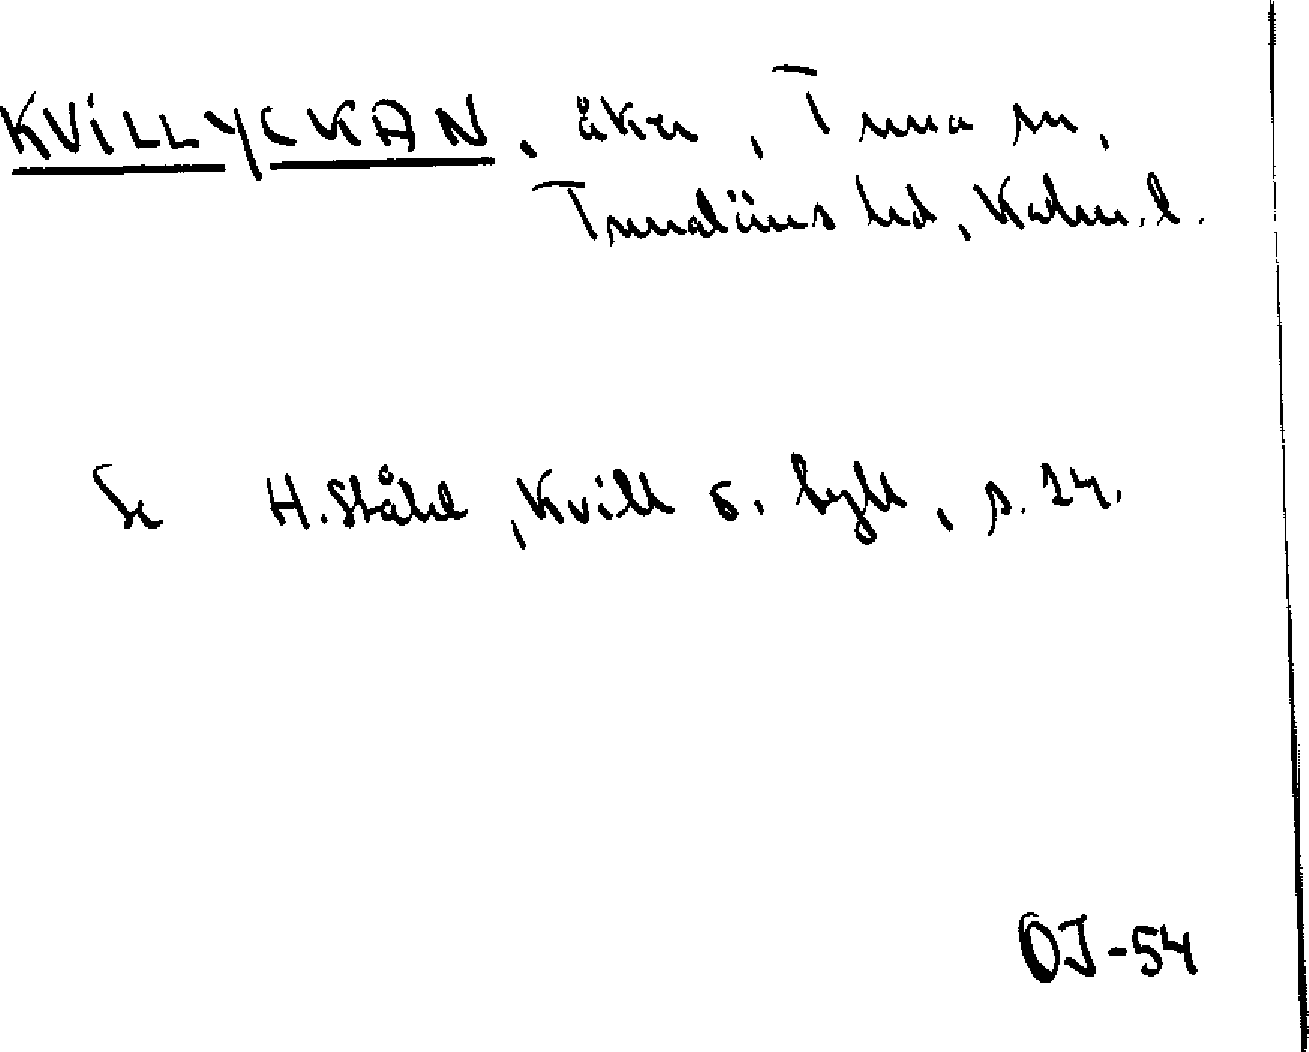 KVILLYCKAN, åker, Tuna sn,
Tunaläns hd, Kalm. l.
Se H. Ståhl, Kvill o. Tyll, s. 24.
OJ-54